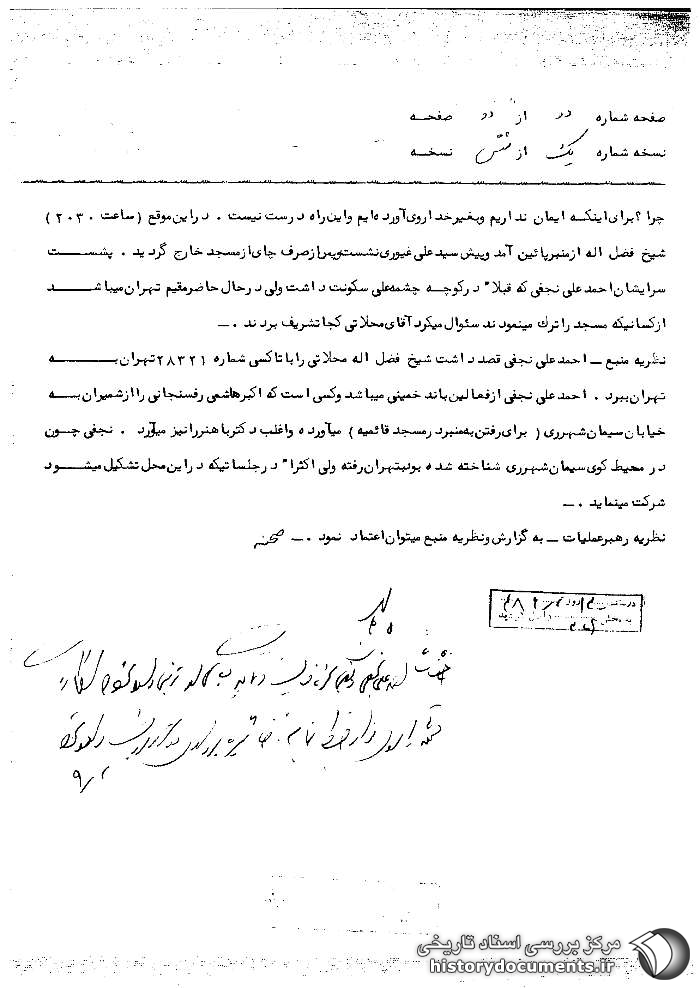 صفحه شماره دو از دو صفحه
نسخه شماره یک از شش نسخه
چرا ؟ برای اینکه ایمان نداریم و بغیر خدا روی آورده‌ایم و این راه درست نیست . در این موقع ( ساعت ۲۰۳۰ )
شیخ فضل اله از منبر پائین آمد و پیش سید علی غیوری نشست و پس از صرف چای از مسجد خارج گردید . پشت
سر ایشان احمد علی نجفی که قبلا" در کوچه چشمه علی سکونت داشت ولی در حال حاضر مقیم تهران میباشد
از کسانیکه مسجد را ترک مینمودند سئوال میکرد آقای محلاتی کجا تشریف بردند . ــ
نظریه منبع ــ احمد علی نجفی قصد داشت شیخ فضل اله محلاتی را با تاکسی شماره ۲۸۳۲۱ تهران به
تهران ببرد . احمد علی نجفی از فعالین باند خمینی میباشد و کسی است که اکبر هاشمی رفسنجانی را از شمیران به
خیابان سیمان شهرری ( برای رفتن به منبر در مسجد قائمیه ) میآورده و اغلب دکتر باهنر را نیز میآورد . نجفی چون
در محیط کوی سیمان شهرری شناخته شده بود بتهران رفته ولی اکثرا" در جلساتیکه در این محل تشکیل میشود
شرکت مینماید . ــ
نظریه رهبر عملیات ــ به گزارش و نظریه منبع میتوان اعتماد نمود . ــ صحنه
مرکز بررسی اسناد تاریخی
historydocuments.ir